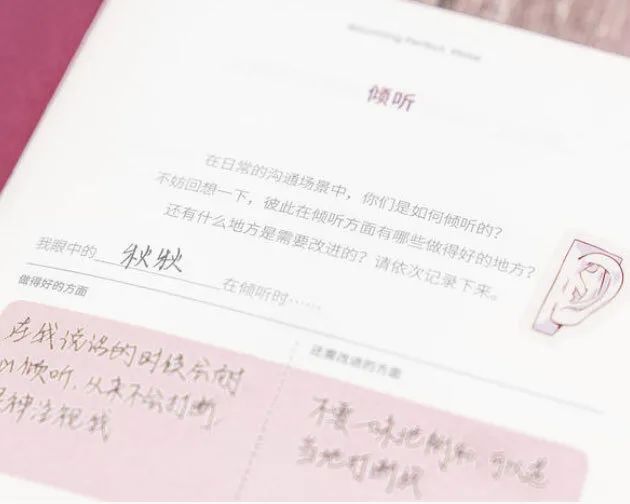 倾听
在日常的沟通场景中，你们是如何倾听的？
不妨回想一下，彼此在倾听方面有哪些做得好的地方？
还有什么地方是需要改进的？请依次记录下来。
我眼中的 秋秋 在倾听时……
做得好的方面
在我说话的时候会耐
以倾听，从来不会打断，
注视我
还需改进的方面
不要一味地附和，可以适
当地打断我